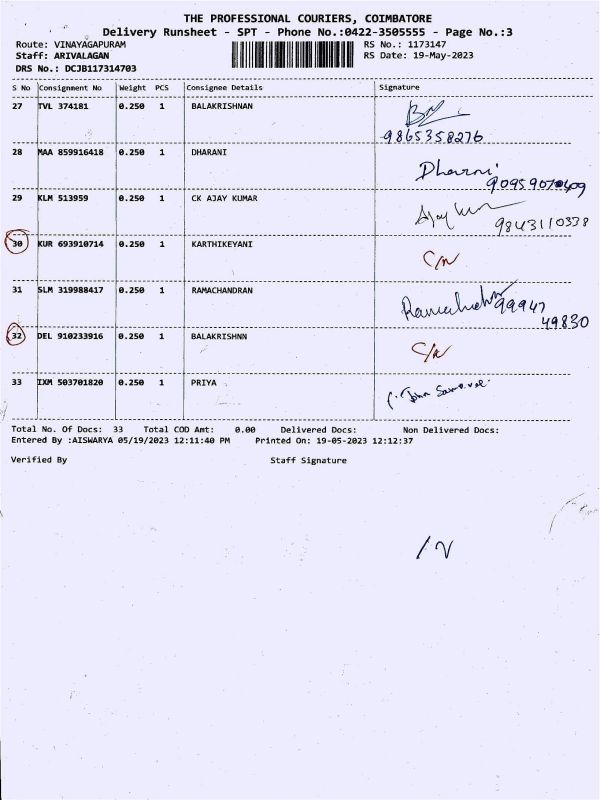 THE PROFESSIONAL COURIERS, COIMBATORE
Delivery Runsheet - SPT - Phone No.:0422-3505555 - Page No.:3
Route: VINAYAGAPURAM RS No.: 1173147
Staff: ARIVALAGAN RS Date: 19-May-2023
DRS No.: DCJB117314703
S No Consignment No Weight PCS Consignee Details Signature
27 TVL 374181 0.250 1 BALAKRISHNAN
9865358276
28 MAA 859916418 0.250 1 DHARANI Dharani
29 KLM 513959 0.250 1 CK AJAY KUMAR Ajay Kum
9843110338
30 KUR 693910714 0.250 1 KARTHIKEYANI C/N
31 SLM 319988417 0.250 1 RAMACHANDRAN 99947
49830
32 DEL 910233916 0.250 1 BALAKRISHNN C/N
33 IXM 503701820 0.250 1 PRIYA
Total No. Of Docs: 33 Total COD Amt: 0.00 Delivered Docs: Non Delivered Docs:
Entered By :AISWARYA 05/19/2023 12:11:40 PM Printed On: 19-05-2023 12:12:37
Verified By Staff Signature